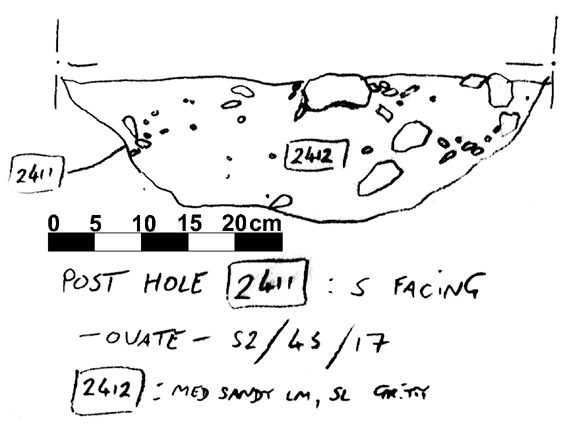 2412
2411
0 5 10 15 20 cm
POST HOLE 2411 : S FACING
- OVATE - 52/45/17
2412 : MED SANDY LM, SL GRITTY